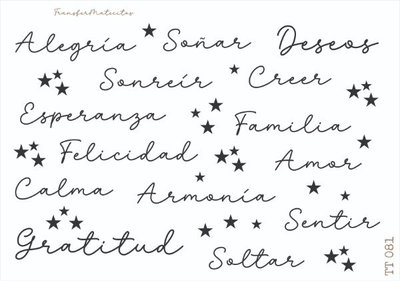 TransferMaticitas
Alegría Soñar Deseos
Sonreír Creer
Esperanza Familia
Felicidad Amor
Calma Armonía
Gratitud Soltar Sentir
TT 081